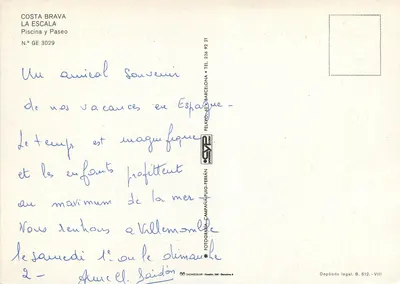 COSTA BRAVA
LA ESCALA
Piscina y Paseo
N.º GE 3029
Un amical souvenir
de nos vacances en Espagne -
Le temps est magnifique
et les enfants profitent
au maximum de la mer -
Nous rentrons à Villemomble
le samedi 1er ou le dimanche
2 -
FOTOGRAFIA CAMPAÑA-PUIG-FERRÁN
BARCELONA - TEL.
Depósito legal. B. 612.-VIII